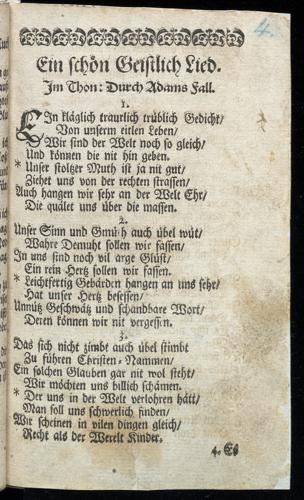 4.
Ein schön Geistlich Lied.
Im Thon: Durch Adams Fall.
1.
EIn kläglich traurlich trüblich Gedicht/
Von unserm eitlen Leben/
Wir sind der Welt noch so gleich/
Und können die nit hin geben.
* Unser stoltzer Muth ist ja nit gut/
Ziehet uns von der rechten strassen/
Auch hangen wir sehr an der Welt Ehr/
Die quälet uns über die massen.
2.
Unser Sinn und Gmüth auch übel wüt/
Wahre Demuht sollen wir fassen/
In uns sind noch vil arge Glüst/
Ein rein Hertz sollen wir fassen.
* Leichtfertig Gebärden hangen an uns sehr/
Hat unser Hertz besessen/
Unnütz Geschwätz und schandbare Wort/
Deren können wir nit vergessen.
3.
Das sich nicht zimbt auch übel stimbt
Zu führen Christen-Nammen/
Ein solchen Glauben gar nit wol steht/
Wir möchten uns billich schämen.
* Der uns in der Welt verlohren hätt/
Man soll uns schwerlich finden/
Wir scheinen in vilen dingen gleich/
Recht als der Werelt Kinder.
4. Es